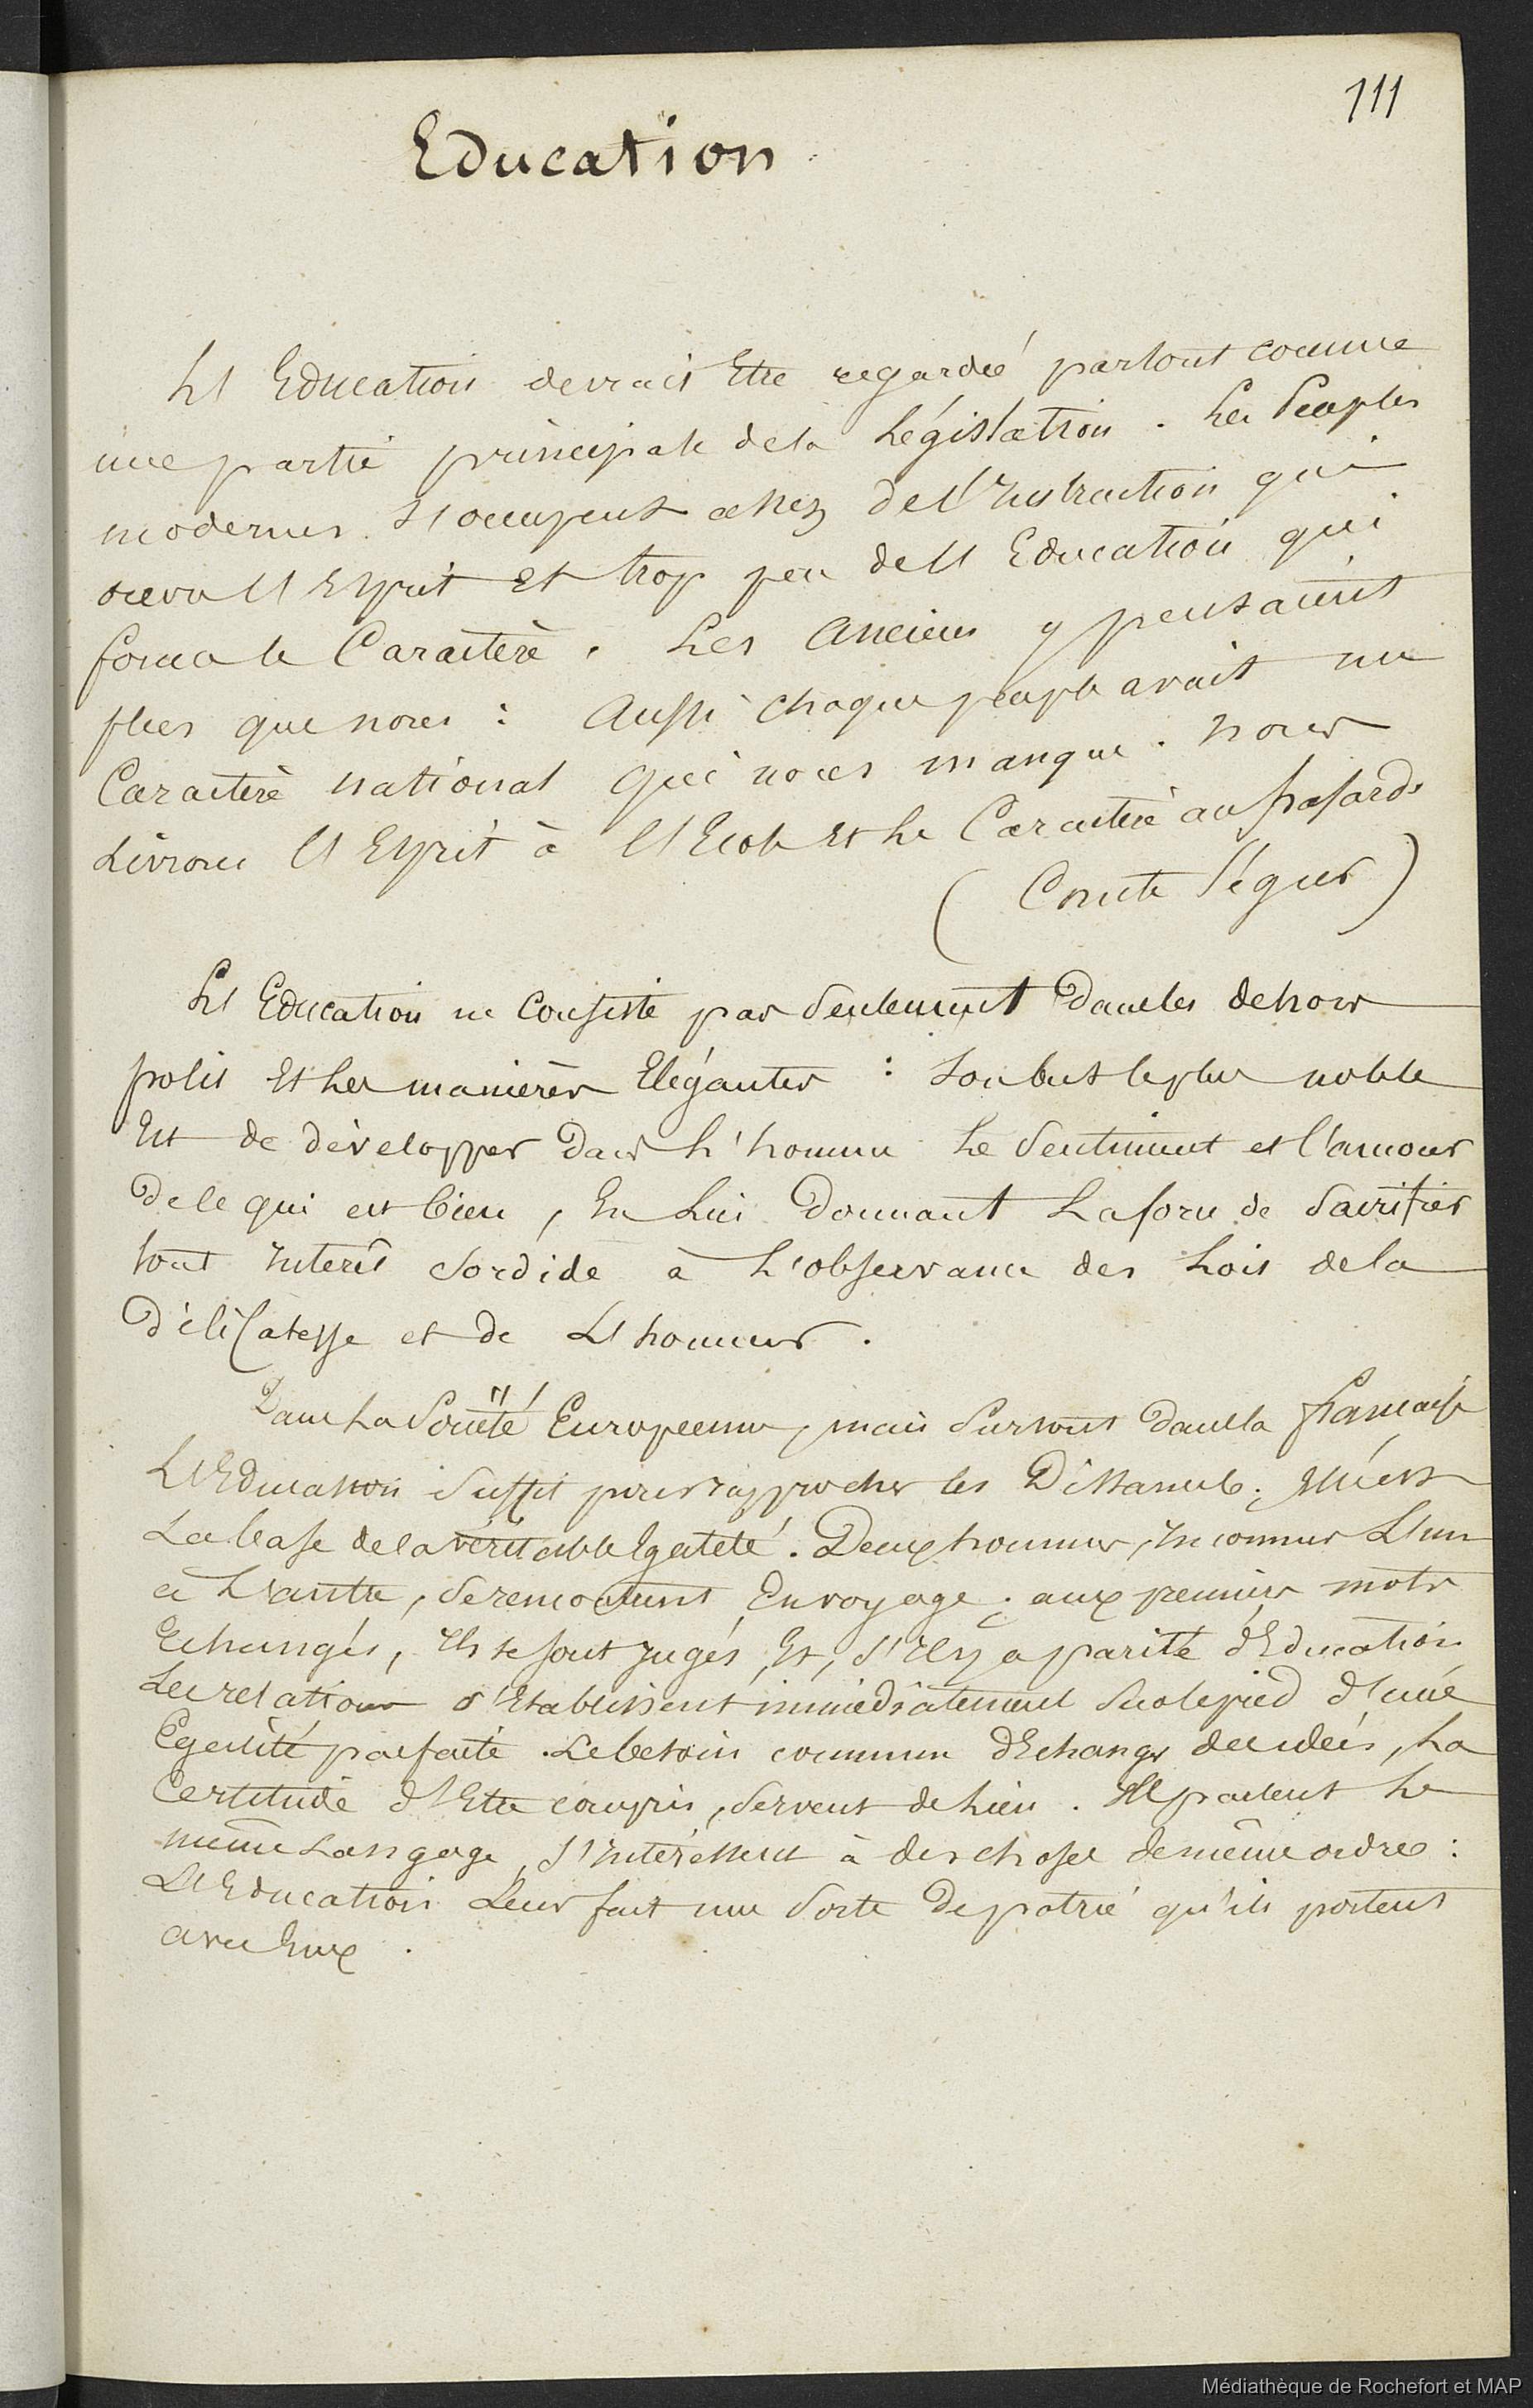 111
Education
L'Education devrait Etre regardée partout comme
une partie principale de la Législation. Les Peuples
modernes s'occupent assez de l'Instruction qui
orne l'Esprit et trop peu de l'Education qui
forme le Caractère. Les anciens y pensaient
plus que nous : Aussi chaque peuple avait un
Caractère national qui nous manque. Nous
Livrons l'Esprit à l'Ecole et le Caractère au hasard.
( Comte Ségur )
L'Education ne consiste pas seulement dans les dehors
polis et les manières Elégantes : son but le plus noble
Est de développer dans l'homme le sentiment et l'amour
de ce qui est bien, En lui donnant La force de sacrifier
tout interêt sordide à l'observance des Lois de la
Délicatesse et de L'honneur.
Dans La Société Européenne, mais surtout dans la française
L'Education suffit pour rapprocher les Distances; elle est
La base de la véritable Egalité. Deux hommes, Inconnus L'un
à L'autre, se rencontrent En voyage; aux premiers mots
Echangés, Ils se sont jugés, Et, s'Il y a parité d'Education
Les relations s'Etablissent immédiatement sur le pied d'une
Egalité parfaite. Le besoin commun d'Echanger des idées, La
Certitude d'Etre compris, servent de Lien. Ils parlent le
même Langage, s'Intéressent à des choses de même ordre :
L'Education Leur fait une sorte de patrie qu'ils portent
avec Eux.
Médiathèque de Rochefort et MAP